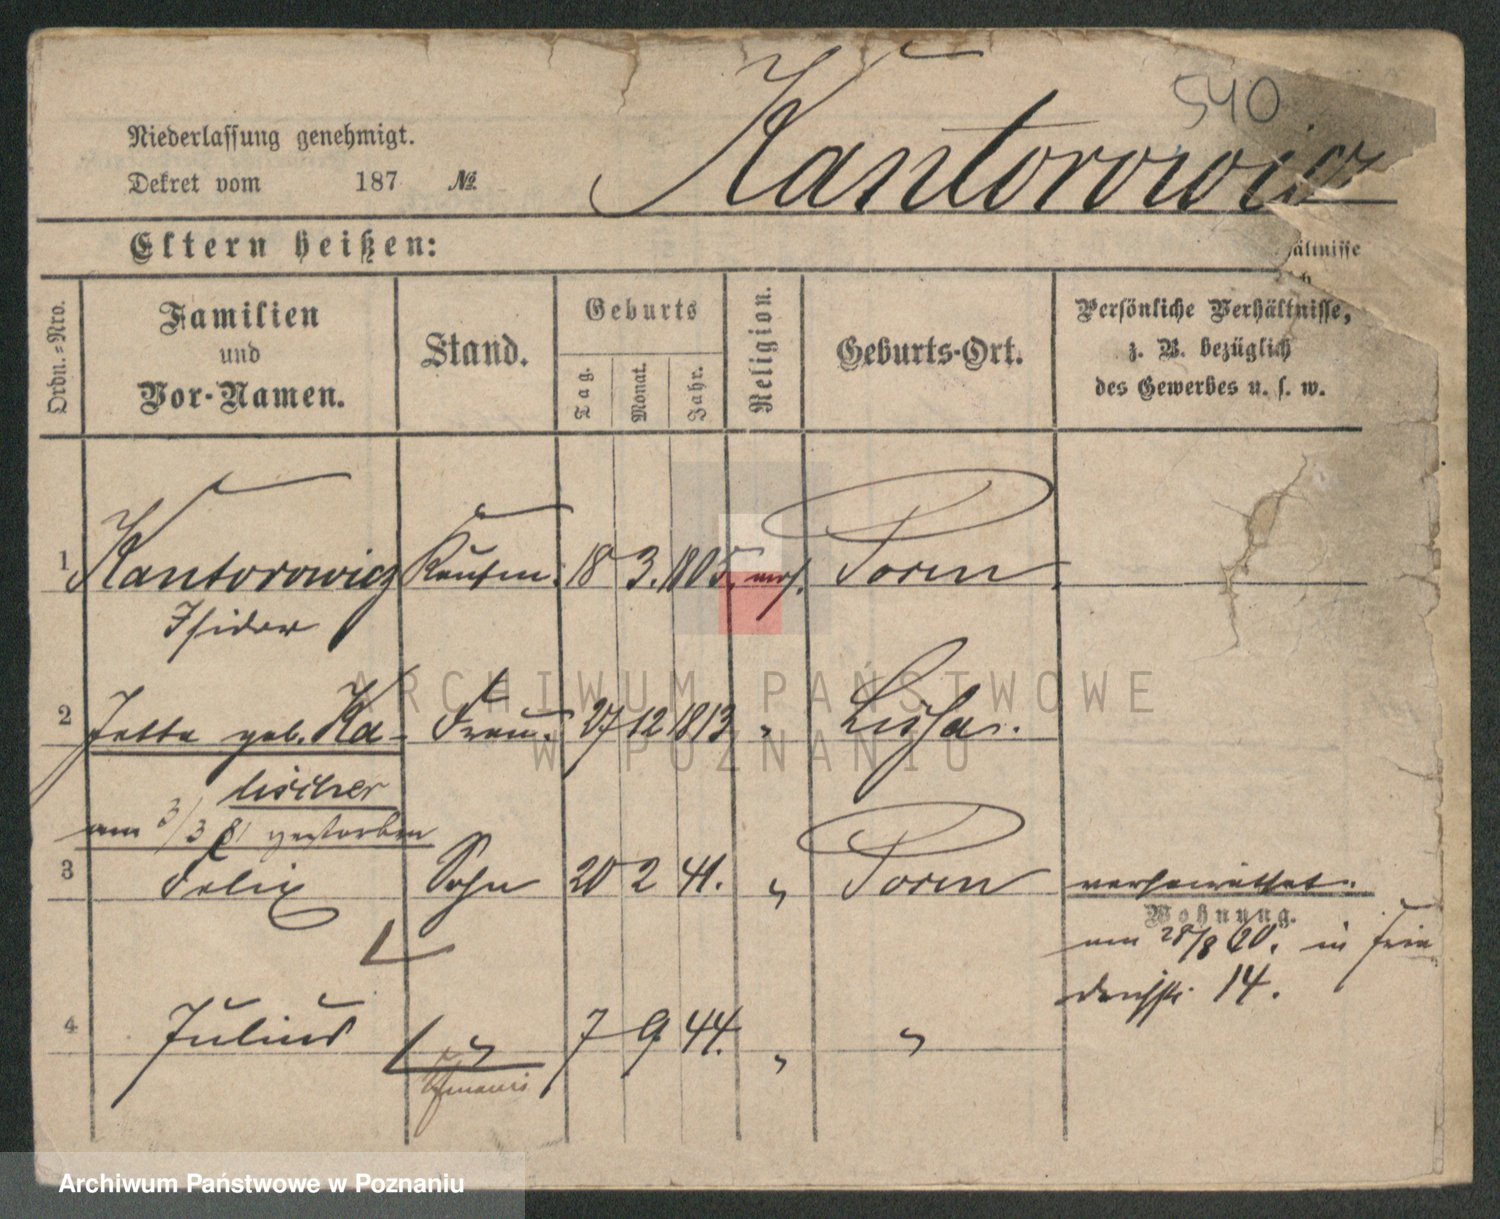 540
Kantorowicz
Niederlassung genehmigt.
Dekret vom 187 №
Eltern heißen:
ältnisse
Ordn.-Nro.
Familien
und
Vor-Namen.
Stand.
Geburts
Tag.
Monat.
Jahr.
Religion.
Geburts-Ort.
Persönliche Verhältnisse,
z. B. bezüglich
des Gewerbes u. s. w.
1 Kantorowicz Kaufm. 18 3. 1805. mos. Posen
Isidor
2 Jette geb. Ka- Frau. 27 12 1813 " Lissa.
lischer
am 3/3 81 gestorben
3 Felix Sohn 20 2 41. " Posen verheirathet.
Wohnung.
am 28/8 in Frie
drichstr. 14.
4 Julius " 7 9 44. " "
ARCHIWUM PAŃSTWOWE
W POZNANIU
Archiwum Państwowe w Poznaniu